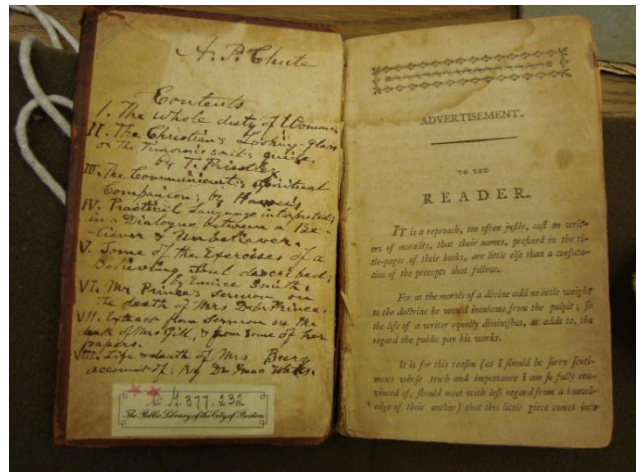 A. P. Chute
Contents
I. The whole duty of Woman.
II. The Christian's Looking-glass
or The Timorous saint's guide,
by T. Priestley
III. The Communicant's spiritual
Companion; by Haweis
IV. Practical Language interpreted;
in a Dialogue between a Be-
liever & Unbeliever.
V. Some of the Exercises of a
Believing Soul described;
by Eunice Smith.
VI. Mr Prince's Sermon on
the death of Mrs Deb. Prince.
VII. Extract from Sermon on the
death of Mrs Gill, & from some of her
papers.
VIII. Life & death of Mrs Bury
account of: By Dr Isaac Watts.
H.377.232
The Public Library of the City of Boston
ADVERTISEMENT.
TO THE
READER.
IT is a reproach, too often justly, cast on writ-
ers of morality, that their names, prefixed in the ti-
tle-pages of their books, are little else than a confuta-
tion of the precepts that follow.
For as the morals of a divine add no little weight
to the doctrine he would inculcate from the pulpit, so
the life of a writer equally diminishes, or adds to, the
regard the public pay his works.
It is for this reason (as I should be sorry senti-
ments whose truth and importance I am so fully con-
vinced of, should meet with less regard from a knowl-
edge of their author) that this little piece comes into